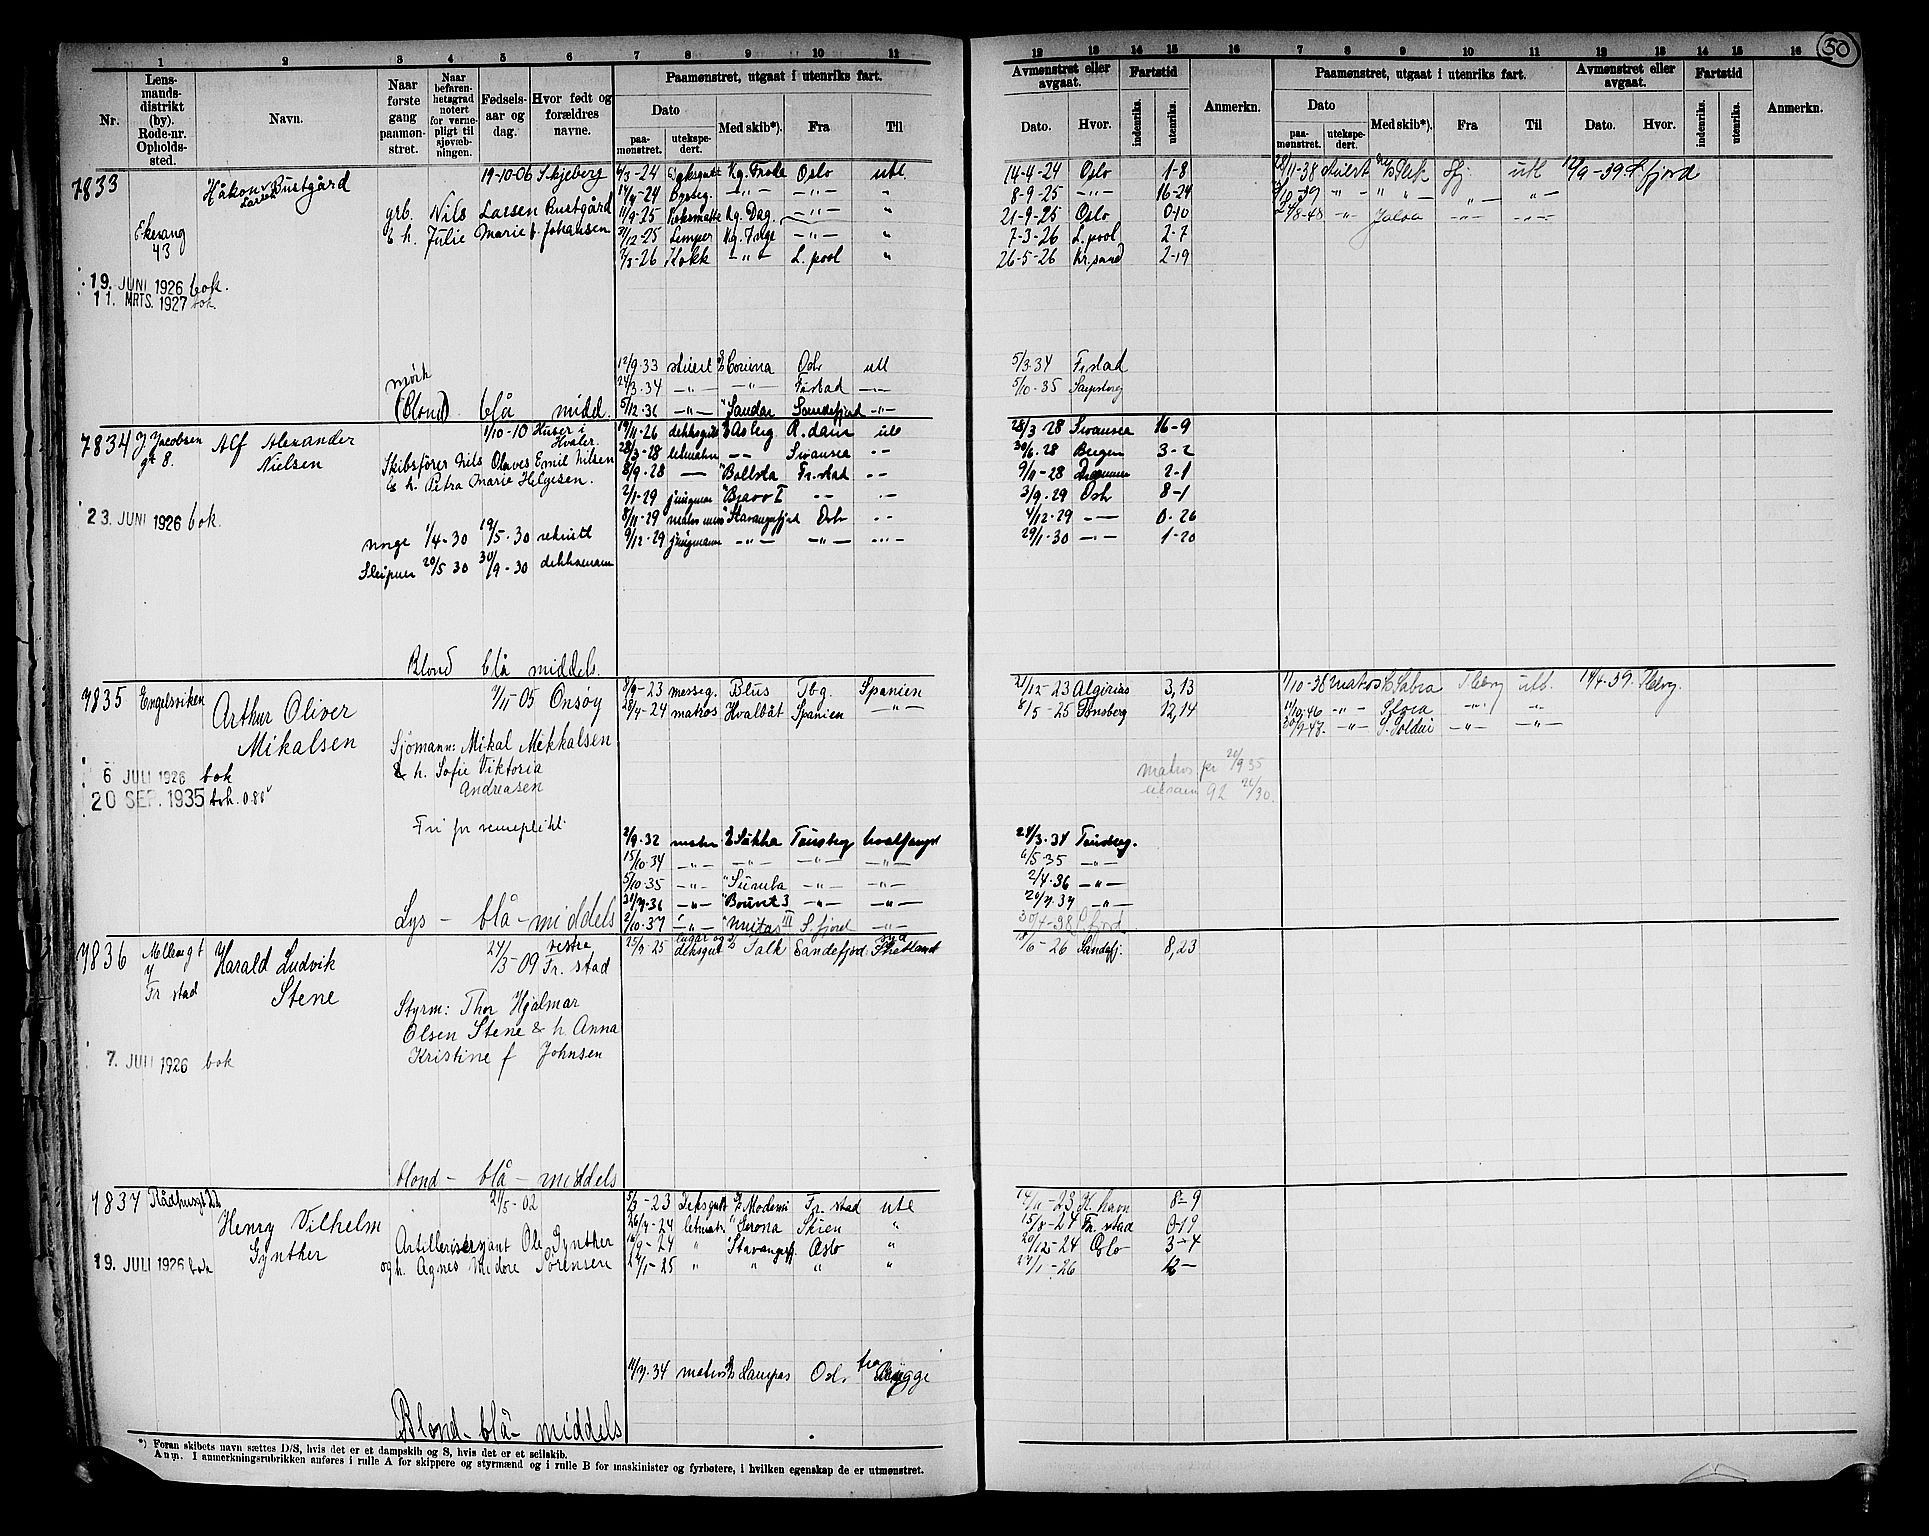 50
1 2 3 4 5 6 7 8 9 10 11
Nr.
Lens-
mands-
distrikt
(by).
Rode-nr.
Opholds-
sted.
Navn.
Naar
første
gang
paamøn-
stret.
Naar
befaren-
hetsgrad
notert
for verne-
pligt til
sjøvæb-
ningen.
Fødsels-
aar og
dag.
Hvor født og
forældres
navne.
Paamønstret, utgaat i utenriks fart.
Dato
paa-
mønstret.
utekspe-
dert.
Med skib*).
Fra
Til
12 13 14 15 16 7 8 9 10 11 12 13 14 15 16
Avmønstret eller
avgaat.
Dato.
Hvor.
Fartstid
indenriks.
utenriks.
Anmerkn.
Paamønstret, utgaat i utenriks fart.
Dato
paa-
mønstret.
utekspe-
dert.
Med skib*).
Fra
Til
Avmønstret eller
avgaat.
Dato.
Hvor.
Fartstid
indenriks.
utenriks.
Anmerkn.
7833 Håkon Bustgård
Larsen
19-10-06 Skjeberg
grb. Nils Larsen Bustgård
& h. Julie Marie f. Johansen
43
19. JUNI 1926 bok.
11. MRTS. 1927 bok.
mørk
(Blond) blå midd.
3-24 Kg. Frode Oslo utl 14-4-24 Oslo 1-8
4-24 -"- -"- " 8-9-25 -"- 16-24
11/9-25 Kg. Dag. -"- " 21-9-25 Oslo 0-10
31/12-25 Kg. Inge -"- " 7-3-26 L. pool 2-7
7/3-26 Kokk -"- L. pool " 26-5-26 Kr.sand 2-19
12/9.33 stuert Corona Osl utl 5/3.34 Fr.stad
24/3.34 -"- -"- Fr.stad -"- 5/10-35 Sarpsborg
5/12.36 -"- "Sandar Sandefjord -"-
11-38 stuert utl 9-39 S.fjord
10-39 -"- " " -"- -"-
8-48 -"- -"- -"-
7834 J. Jacobsen
gt 8.
Alf Alexander
Nielsen
1/10-10 Huser i
Hvaler.
Skibsfører Nils Olaves Emil Nilsen
& h. Petra Marie Helgesen.
23. JUNI 1926 bok.
Norge 1/4-30 19/5-30 rekrutt
Sleipner 20/5 30 30/9-30 dekksmann
Blond blå middels.
19/11-26 dekksgutt Asberg R.dam utl 28/3-28 Swansea 16-9
28/3-28 letmatr -- Swansea -- 30/6.28 Bergen 3-2
8/9-28 -- "Ballsta Fr.stad -- 9/11-28 Drammen 2-1
2/1-29 jungmann "Bjavo I -- -- 3/9.29 Oslo 8-1
8/11-29 "Stavangerfjord Oslo -- 4/12-29 -"- 0-26
9/12.29 jungmann -"- -"- -"- 29/1-30 -"- 1-20
7835 Engelsviken
Arthur Oliver
Mikalsen
7/11-05 Onsøy
Sjømann: Mikal Mikkalsen
& h. Sofie Viktoria
Andreasen
6 JULI 1926 bok
20 SEP. 1935 bok.
Fri for verneplikt
Lys - blå - middels
8/9-23 messeg. Blus Tbg. Spanien 21/12-23 Algirias 3,13
28/4-24 matros Hvalbåt Spanien -"- 8/5-25 Tønsberg 12,14
matros pr 20/9 35
2/9.32 matr Tønsberg hvalfangst 24/3.34 Tønsberg.
15/10.34 -"- -"- -"- -"- 6/5-35 -"-
5/10.35 -"- "Sumba -"- -"- 2/4.36 -"-
36 -"- "Bouvet 3 -"- -"- 37 -"-
2/10.37 -"- III S.fjord -"- 30/4-38 S.fjord
1/10-38 matros Sabra Tbg utl. 14/4-39. Tbg.
46 -"- -"- -"-
47. -"- -"- -"-
7836 Møllergt
7
Fr stad
Harald Ludvik
Stene
24/3-09 vestre
Fr. stad
Styrm: Thor Hjalmar
Olsen Stene & h Anna
Kristine f Johnsen
7. JULI 1926 bok
blond - blå - middels
25/9-25 lugar og
deksgut Falk Sandefjord Syd
Shetland 6-26 Sandefj. 8,23
7837 Rådhusgt 22
Henry Vilhelm
Gynther
21/5-02
Artillerisersjant Ole Gynther
og h. Agnes Midore Sørensen
19. JULI 1926 bok
Blond - blå - middels
5/3-23 Deksgutt Fr. stad utl 14/11-23 K. havn 8-9
26/7-24 letmatr "Serona Skien " 15/8-24 Fr. stad 0-19
16/9-24 " Stavangerfj. Oslo " 20/12-24 Oslo 3-4
27/1-25 " " " " 27/1-26 12-
34 matros Lampas Osl. fra Brygge
*) Foran skibets navn sættes D/S, hvis det er et dampskib og S, hvis det er et seilskib.
Anm. I anmerkningsrubrikken anføres i rulle A for skippere og styrmænd og i rulle B for maskinister og fyrbøtere, i hvilken egenskap de er utmønstret.